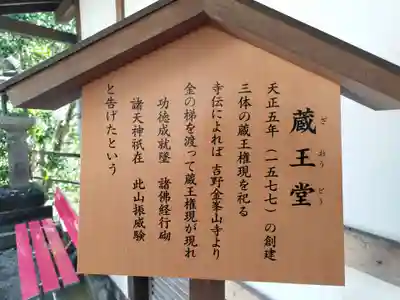 蔵王堂
ざおうどう
天正五年（一五七七）の創建
三体の蔵王権現を祀る
寺伝によれば 吉野金峯山寺より
金の梯を渡って蔵王権現が現れ
功徳成就墜 諸佛経行砌
諸天神祇在 此山振威験
と告げたという